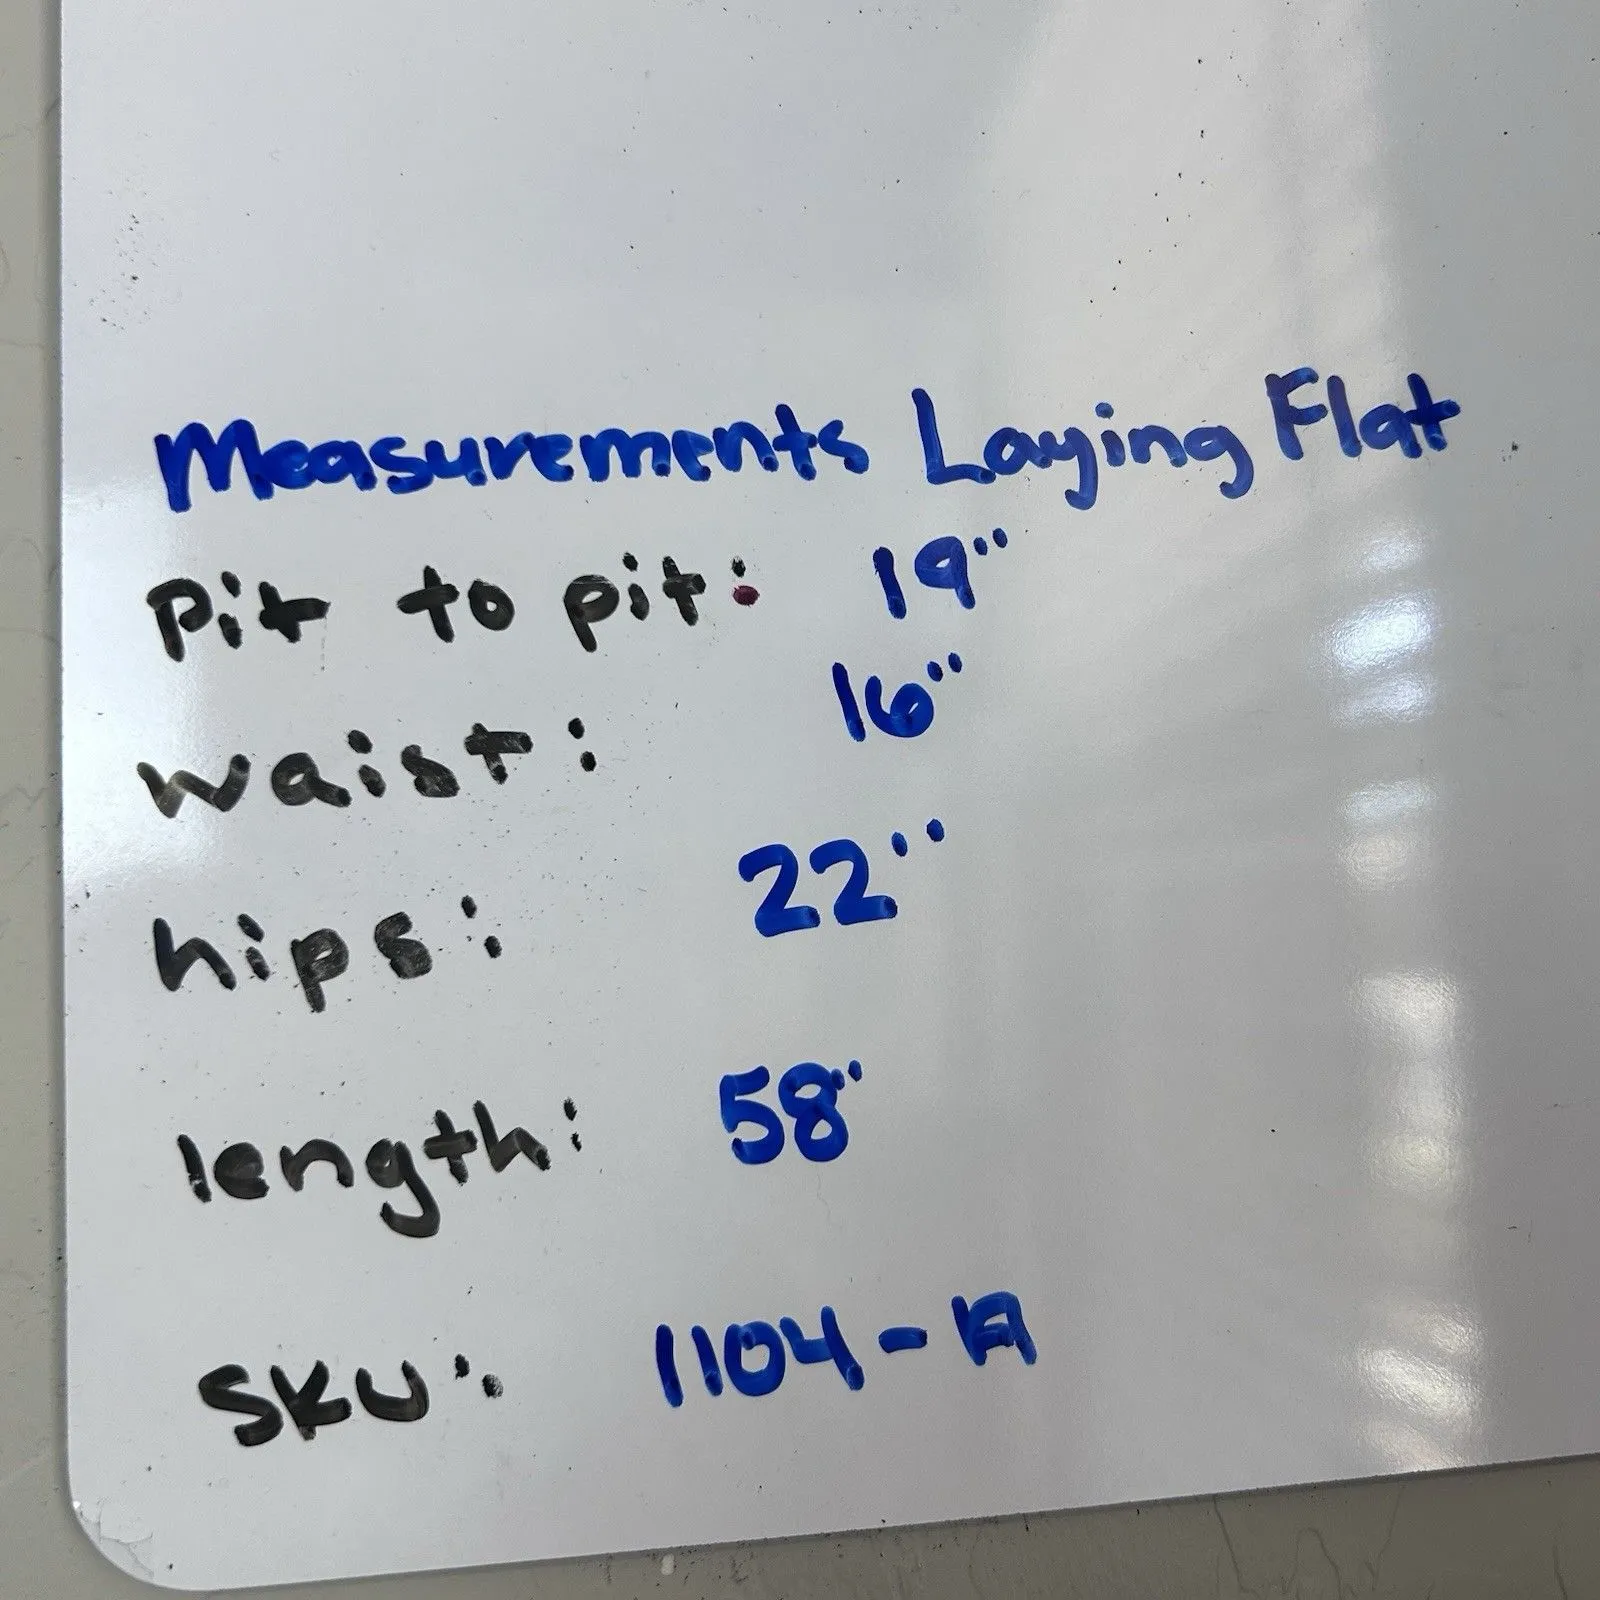 Measurements Laying Flat
Pit to pit: 19"
waist: 16"
hips: 22"
length: 58"
SKU: 1104-A